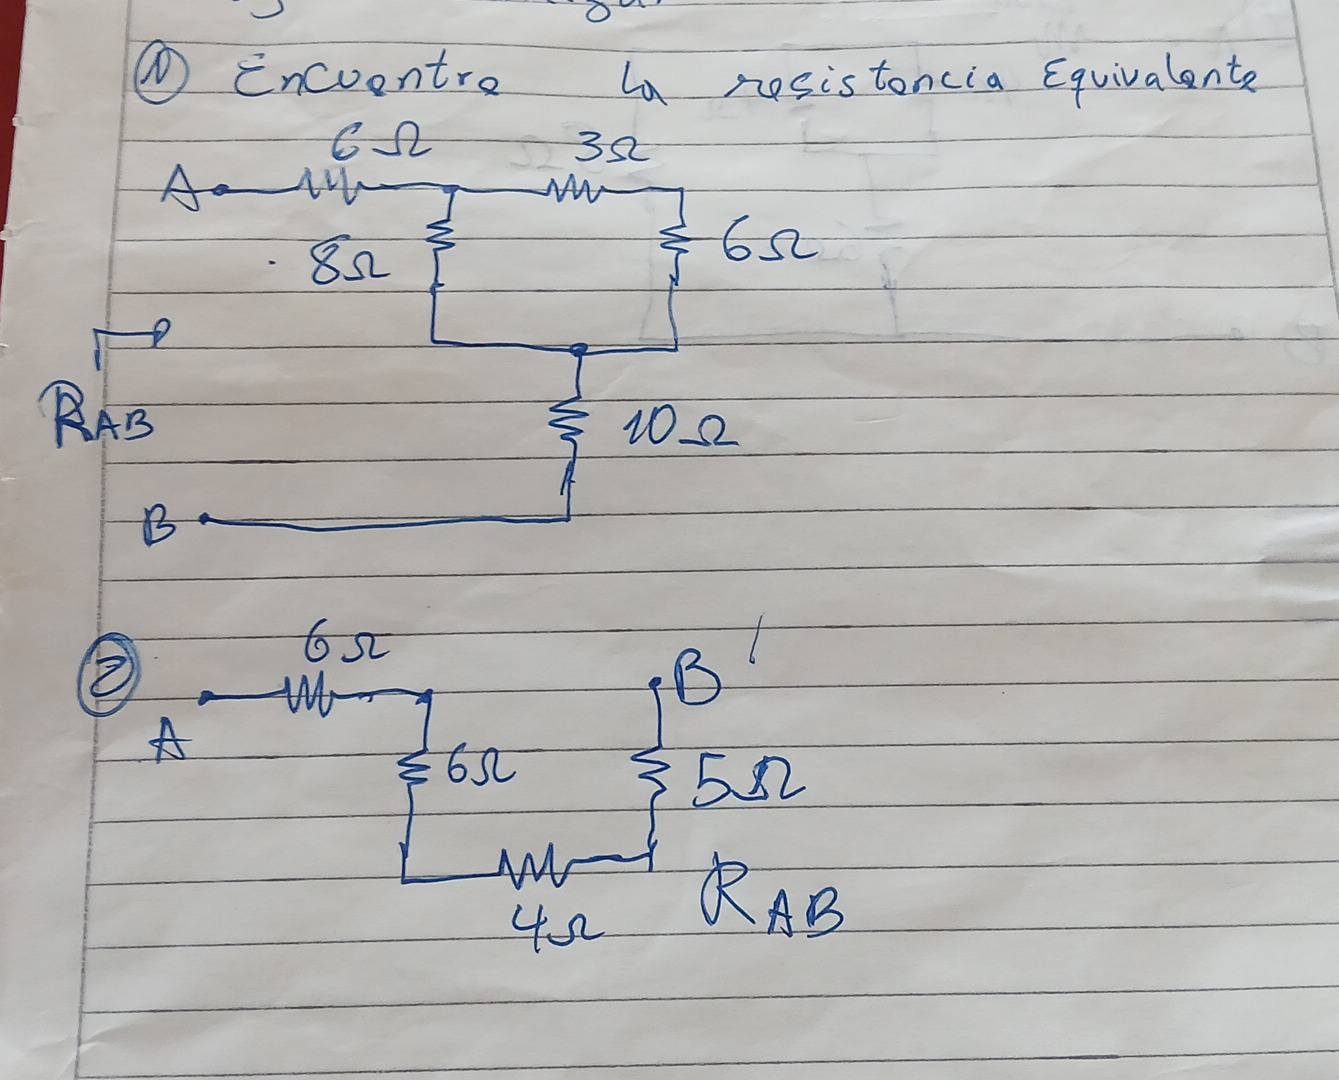 ① Encuentre la resistencia Equivalente
6Ω 3Ω
A
8Ω 6Ω
RAB
10Ω
B
② 6Ω
B
A
6Ω 5Ω
RAB
4Ω